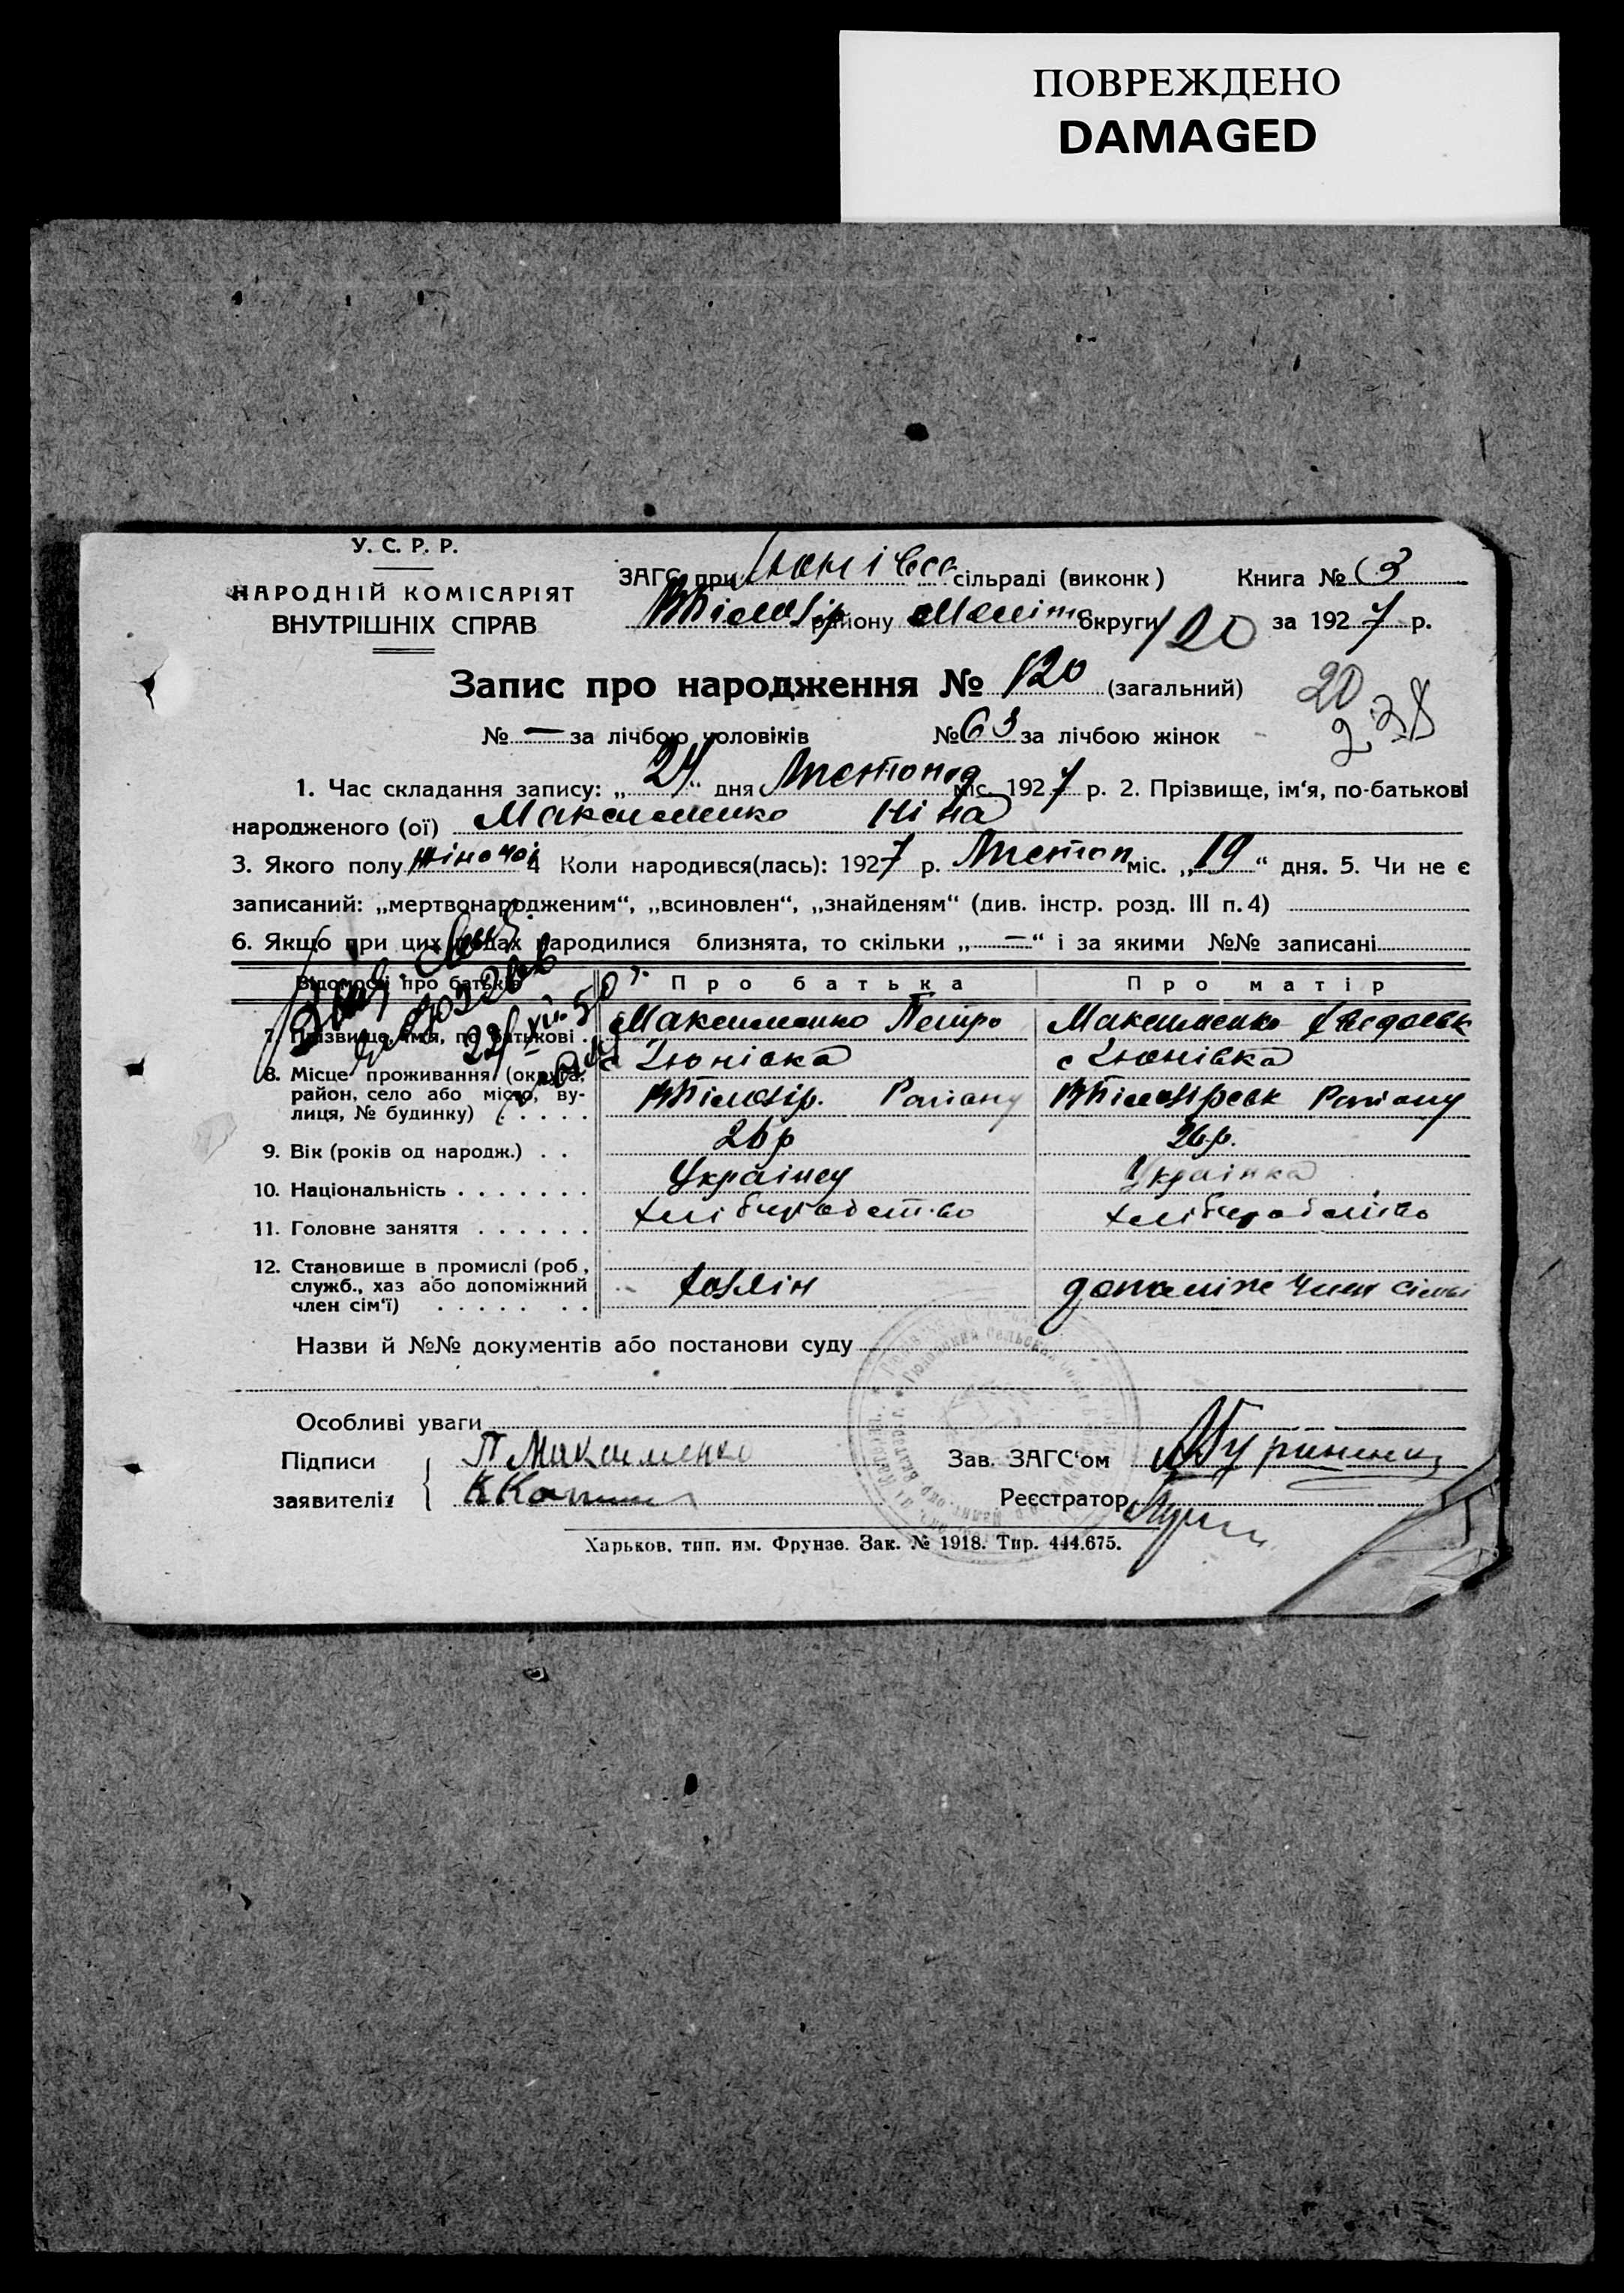 ПОВРЕЖДЕНО
DAMAGED
У. С. Р. Р.
НАРОДНІЙ КОМІСАРІЯТ
ВНУТРІШНІХ СПРАВ
ЗАГС при сільраді (виконк) Книга № 3
району Меліт округи 120 за 1927 р.
Запис про народження № 120 (загальний)
20
238
№ — за лічбою чоловіків № 63 за лічбою жінок
1. Час складання запису: „24“ дня Листопад міс. 1927 р. 2. Прізвище, ім‘я, по-батькові
народженого (ої) Максименко Ніна
3. Якого полу жіночої 4 Коли народився(лась): 1927 р. Листоп міс. „19“ дня. 5. Чи не є
записаний: „мертвонародженим“, „всиновлен“, „знайденям“ (див. інстр. розд. III п. 4)
6. Якщо при цих родах народилися близнята, то скільки „—“ і за якими №№ записані
Відомості про батьків Про батька Про матір
7. Прізвище, ім‘я, по батькові Максименко Петро Максименко
8. Місце проживання (округа, с Тюнівка с Тюнівка
район, село або місто, ву- Району Району
лиця, № будинку)
9. Вік (років од народж.) 26 р 26 р.
10. Національність Українец Українка
11. Головне заняття хліборобство хліборобство
12. Становище в промислі (роб,
служб., хаз або допоміжний хозяїн допоміж член сімї
член сім‘ї)
Назви й №№ документів або постанови суду
Особливі уваги
Підписи П Максименко Зав. ЗАГС‘ом
заявителів Реєстратор
Харьков, тип. им. Фрунзе. Зак. № 1918. Тир. 444.675.